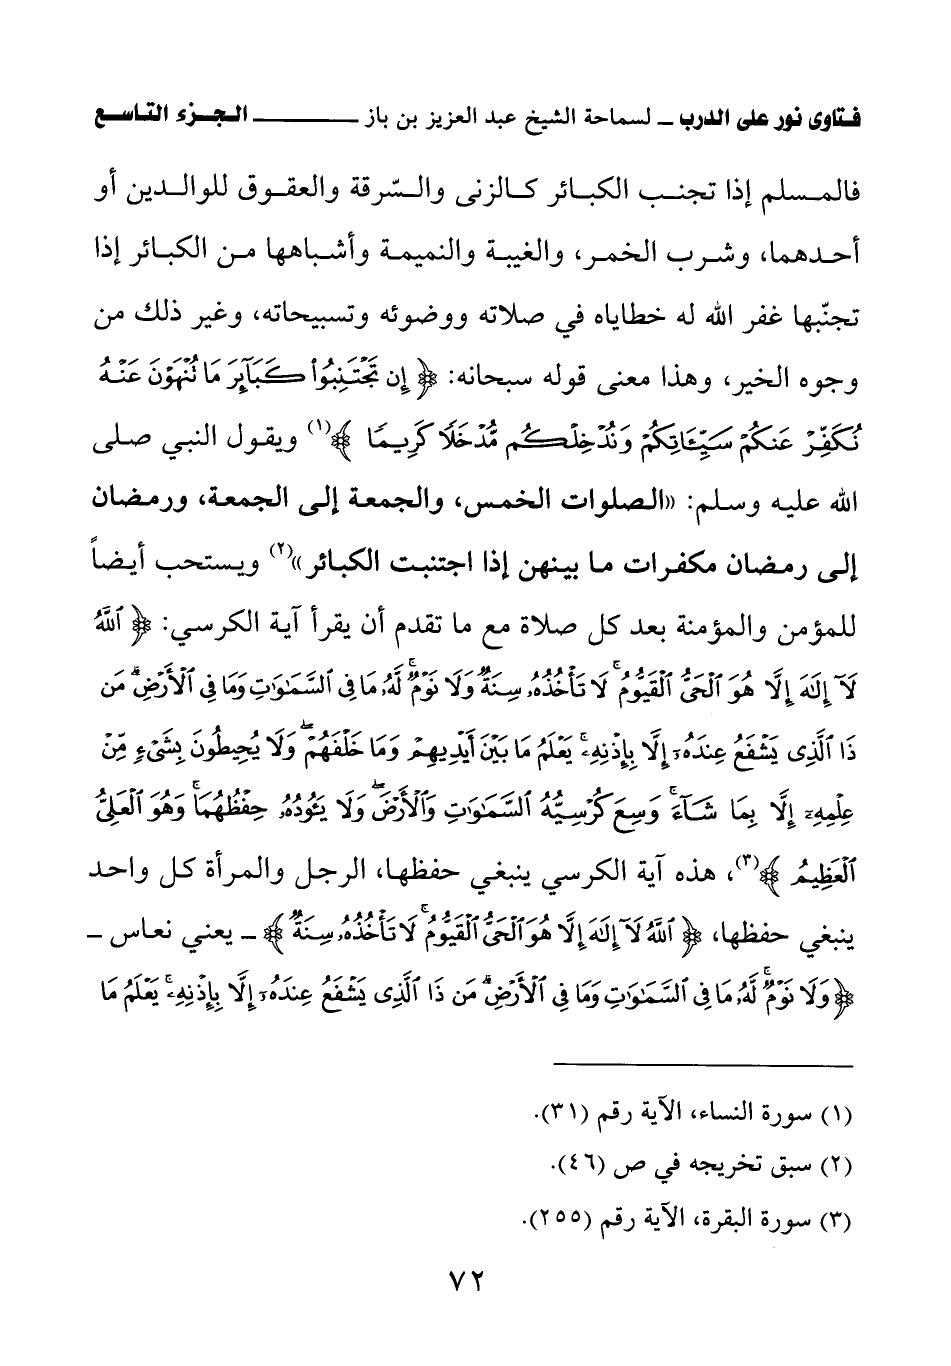 فتاوى نور على الدرب - لسماحة الشيخ عبد العزيز بن باز ـــــــــ الجزء التاسع
فالمسلم إذا تجنب الكبائر كالزنى والسّرقة والعقوق للوالدين أو
أحدهما، وشرب الخمر، والغيبة والنميمة وأشباهها من الكبائر إذا
تجنّبها غفر الله له خطاياه في صلاته ووضوئه وتسبيحاته، وغير ذلك من
وجوه الخير، وهذا معنى قوله سبحانه: ﴿ إِن تَجْتَنِبُواْ كَبَآئِرَ مَا تُنْهَوْنَ عَنْهُ
نُكَفِّرْ عَنكُمْ سَيِّـَٔاتِكُمْ وَنُدْخِلْكُم مُّدْخَلًا كَرِيمًا ﴾(١) ويقول النبي صلى
الله عليه وسلم: «الصلوات الخمس، والجمعة إلى الجمعة، ورمضان
إلى رمضان مكفرات ما بينهن إذا اجتنبت الكبائر»(٢) ويستحب أيضاً
للمؤمن والمؤمنة بعد كل صلاة مع ما تقدم أن يقرأ آية الكرسي: ﴿ ٱللَّهُ
لَآ إِلَٰهَ إِلَّا هُوَ ٱلْحَىُّ ٱلْقَيُّومُ ۚ لَا تَأْخُذُهُۥ سِنَةٌ وَلَا نَوْمٌ ۚ لَّهُۥ مَا فِى ٱلسَّمَٰوَٰتِ وَمَا فِى ٱلْأَرْضِ ۗ مَن
ذَا ٱلَّذِى يَشْفَعُ عِندَهُۥٓ إِلَّا بِإِذْنِهِۦ ۚ يَعْلَمُ مَا بَيْنَ أَيْدِيهِمْ وَمَا خَلْفَهُمْ ۖ وَلَا يُحِيطُونَ بِشَىْءٍ مِّنْ
عِلْمِهِۦٓ إِلَّا بِمَا شَآءَ ۚ وَسِعَ كُرْسِيُّهُ ٱلسَّمَٰوَٰتِ وَٱلْأَرْضَ ۖ وَلَا يَـُٔودُهُۥ حِفْظُهُمَا ۚ وَهُوَ ٱلْعَلِىُّ
ٱلْعَظِيمُ ﴾(٣)، هذه آية الكرسي ينبغي حفظها، الرجل والمرأة كل واحد
ينبغي حفظها، ﴿ ٱللَّهُ لَآ إِلَٰهَ إِلَّا هُوَ ٱلْحَىُّ ٱلْقَيُّومُ ۚ لَا تَأْخُذُهُۥ سِنَةٌ ﴾ - يعني نعاس -
﴿ وَلَا نَوْمٌ ۚ لَّهُۥ مَا فِى ٱلسَّمَٰوَٰتِ وَمَا فِى ٱلْأَرْضِ ۗ مَن ذَا ٱلَّذِى يَشْفَعُ عِندَهُۥٓ إِلَّا بِإِذْنِهِۦ ۚ يَعْلَمُ مَا
(١) سورة النساء، الآية رقم (٣١).
(٢) سبق تخريجه في ص (٤٦).
(٣) سورة البقرة، الآية رقم (٢٥٥).
٧٢